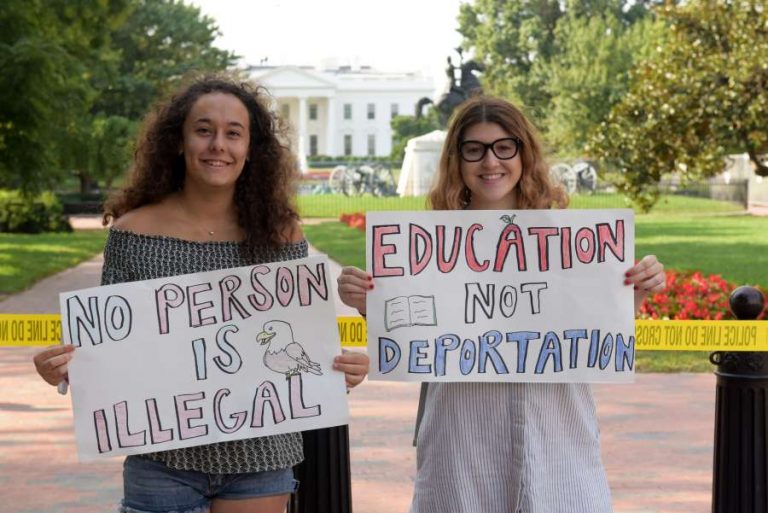 NO PERSON
IS
ILLEGAL
EDUCATION
NOT
DEPORTATION
LINE DO NOT
POLICE
LINE DO NOT CROSS